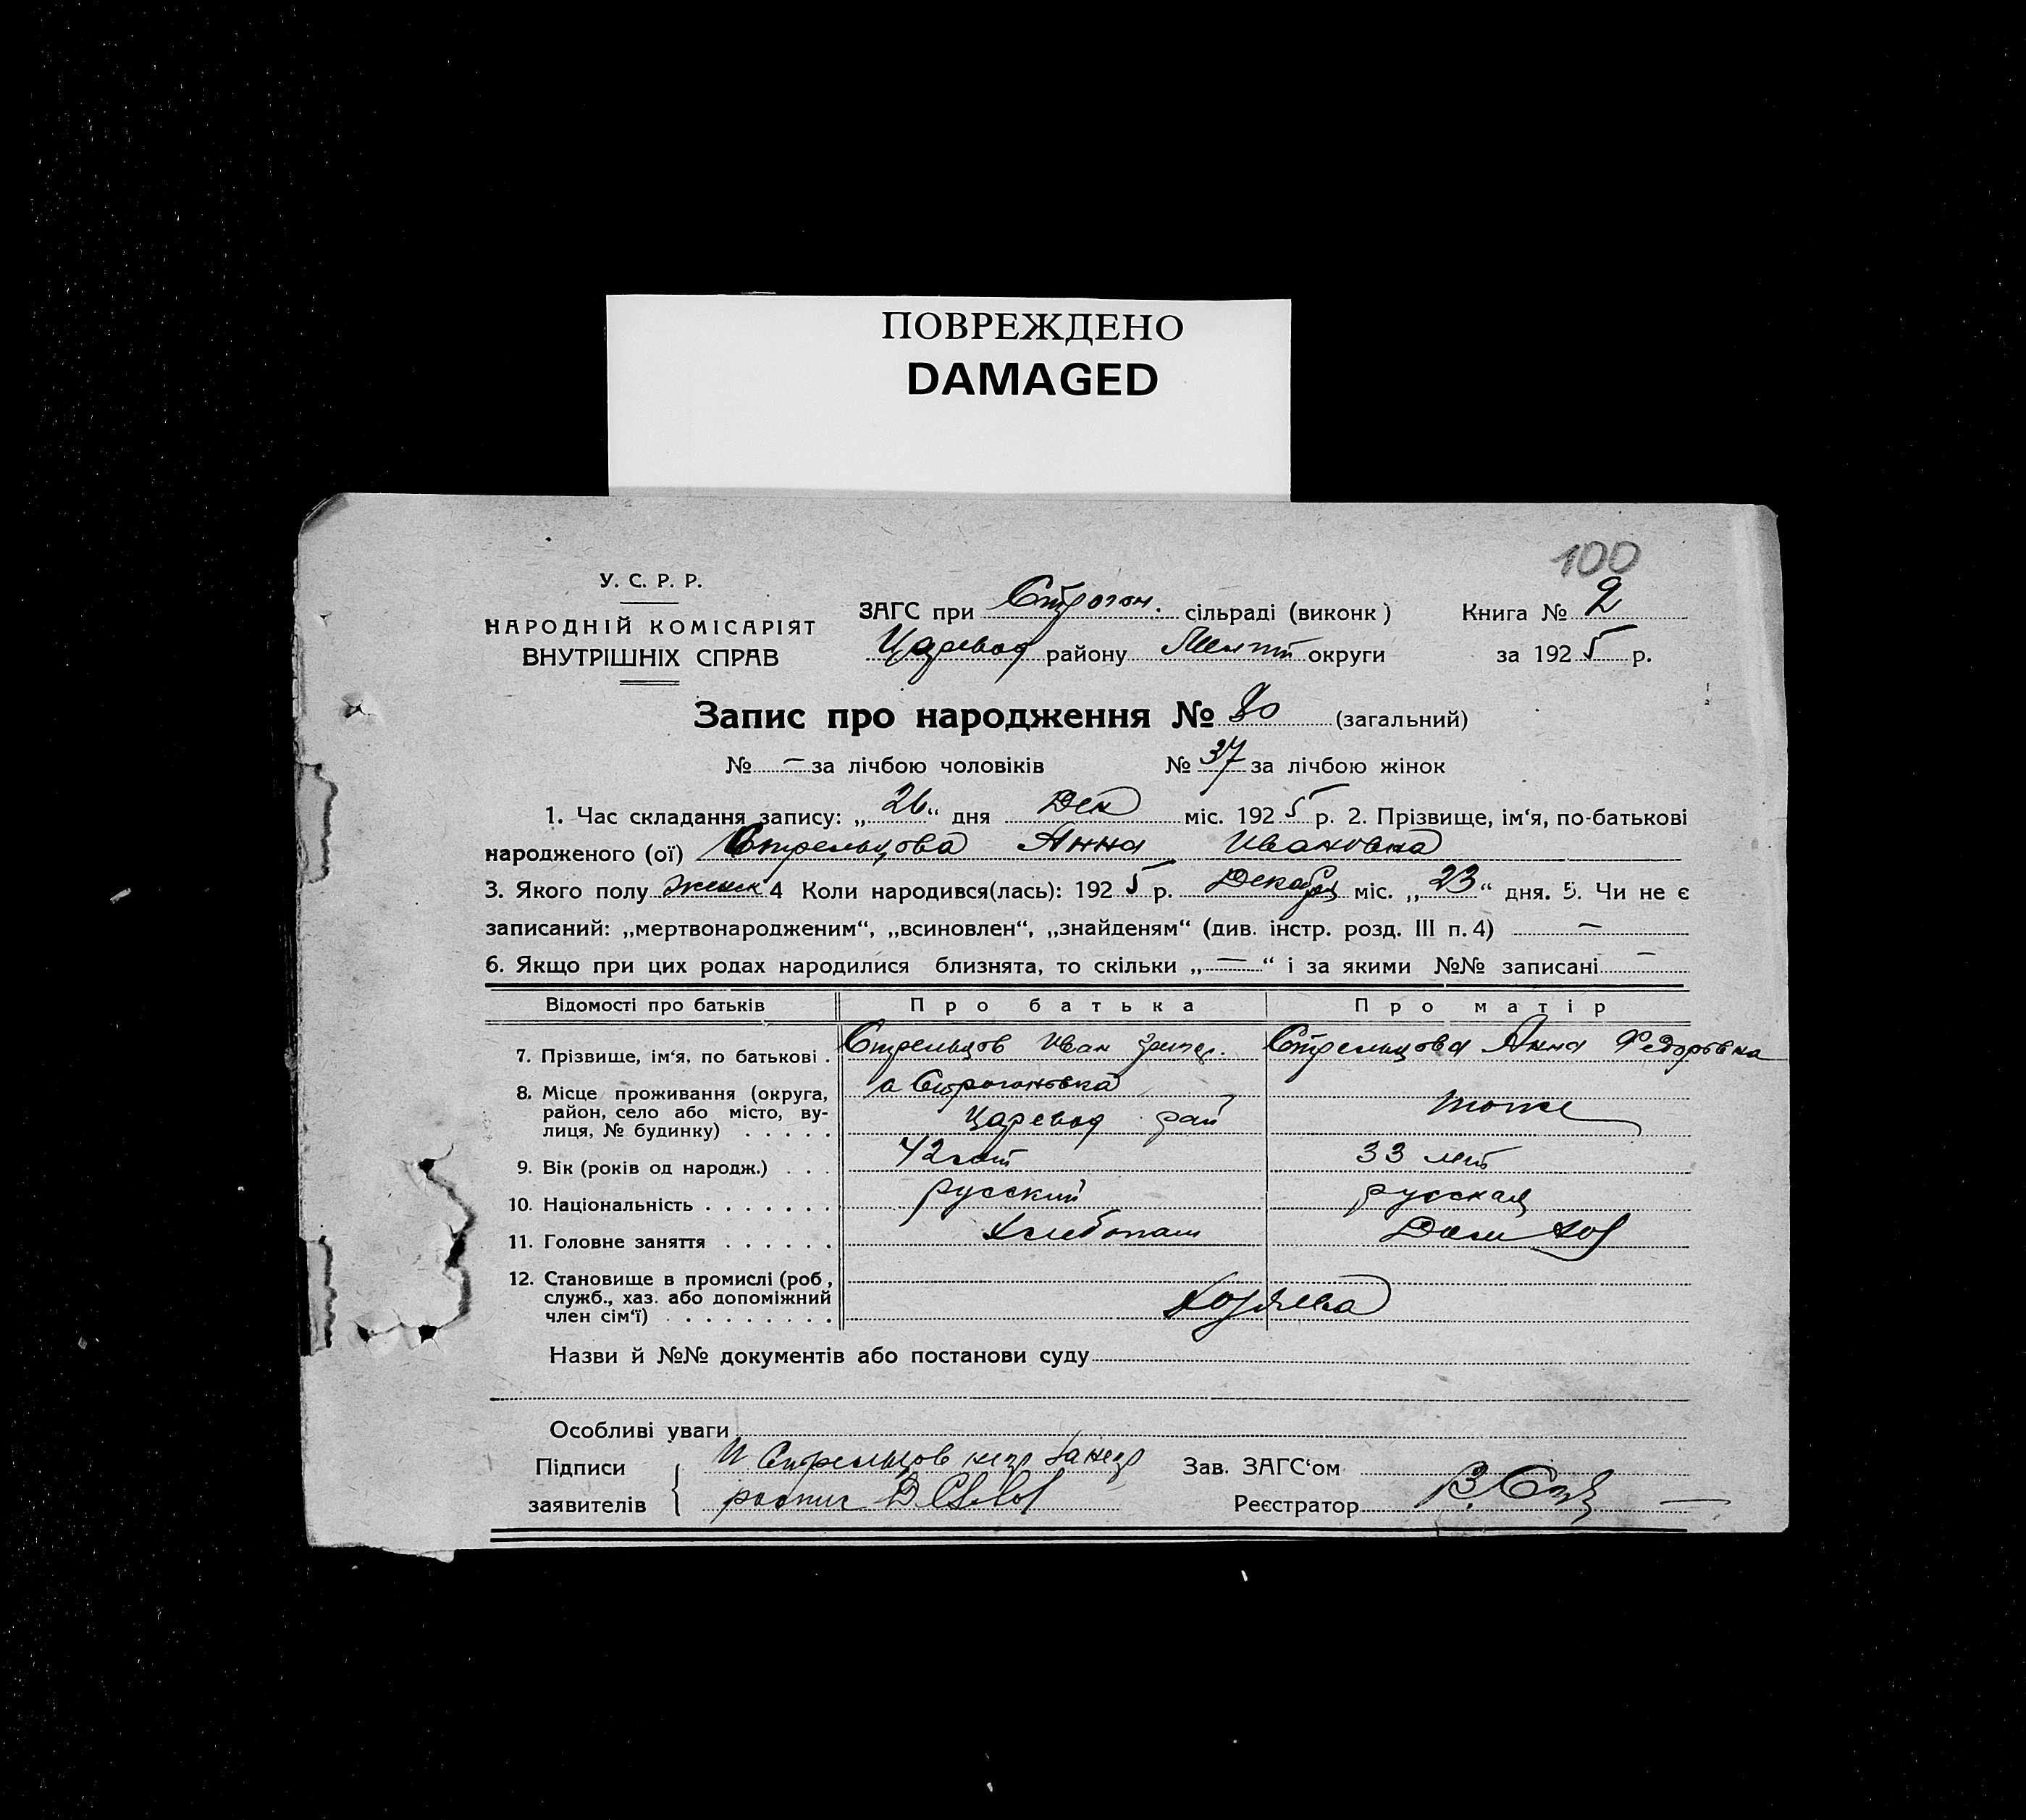 ПОВРЕЖДЕНО
DAMAGED
100
У. С. Р. Р.
НАРОДНІЙ КОМІСАРІЯТ
ВНУТРІШНІХ СПРАВ
ЗАГС при Строган. сільраді (виконк)
Царевод району Мелит округи
Книга № 2
за 1925 р.
Запис про народження № 80 (загальний)
№ — за лічбою чоловіків № 37 за лічбою жінок
1. Час складання запису: „26“ дня Дек міс. 1925 р. 2. Прізвище, ім‘я, по-батькові
народженого (ої) Стрельцова Анна Ивановна
3. Якого полу женск 4 Коли народився(лась): 1925 р. Декабря міс. „23“ дня. 5. Чи не є
записаний: „мертвонародженим“, „всиновлен“, „знайденям“ (див. інстр. розд. III п. 4) —
6. Якщо при цих родах народилися близнята, то скільки „—“ і за якими №№ записані —
Відомості про батьків Про батька Про матір
7. Прізвище, ім‘я, по батькові . Стрельцов Иван Стрельцова Анна Федоровна
8. Місце проживання (округа, район, село або місто, вулиця, № будинку) . . . . . Строгановка
Царевод рай тоже
9. Вік (років од народж.) . . . 42 лет 33 лет
10. Національність . . . . . . . русский русская
11. Головне заняття . . . . . . Хлебопаш Дом хоз
12. Становище в промислі (роб,
служб., хаз. або допоміжний
член сім‘ї) . . . . . . . . . Хозяева
Назви й №№ документів або постанови суду
Особливі уваги
Підписи заявителів И Стрельцов
роспис
Зав. ЗАГС‘ом
Реєстратор